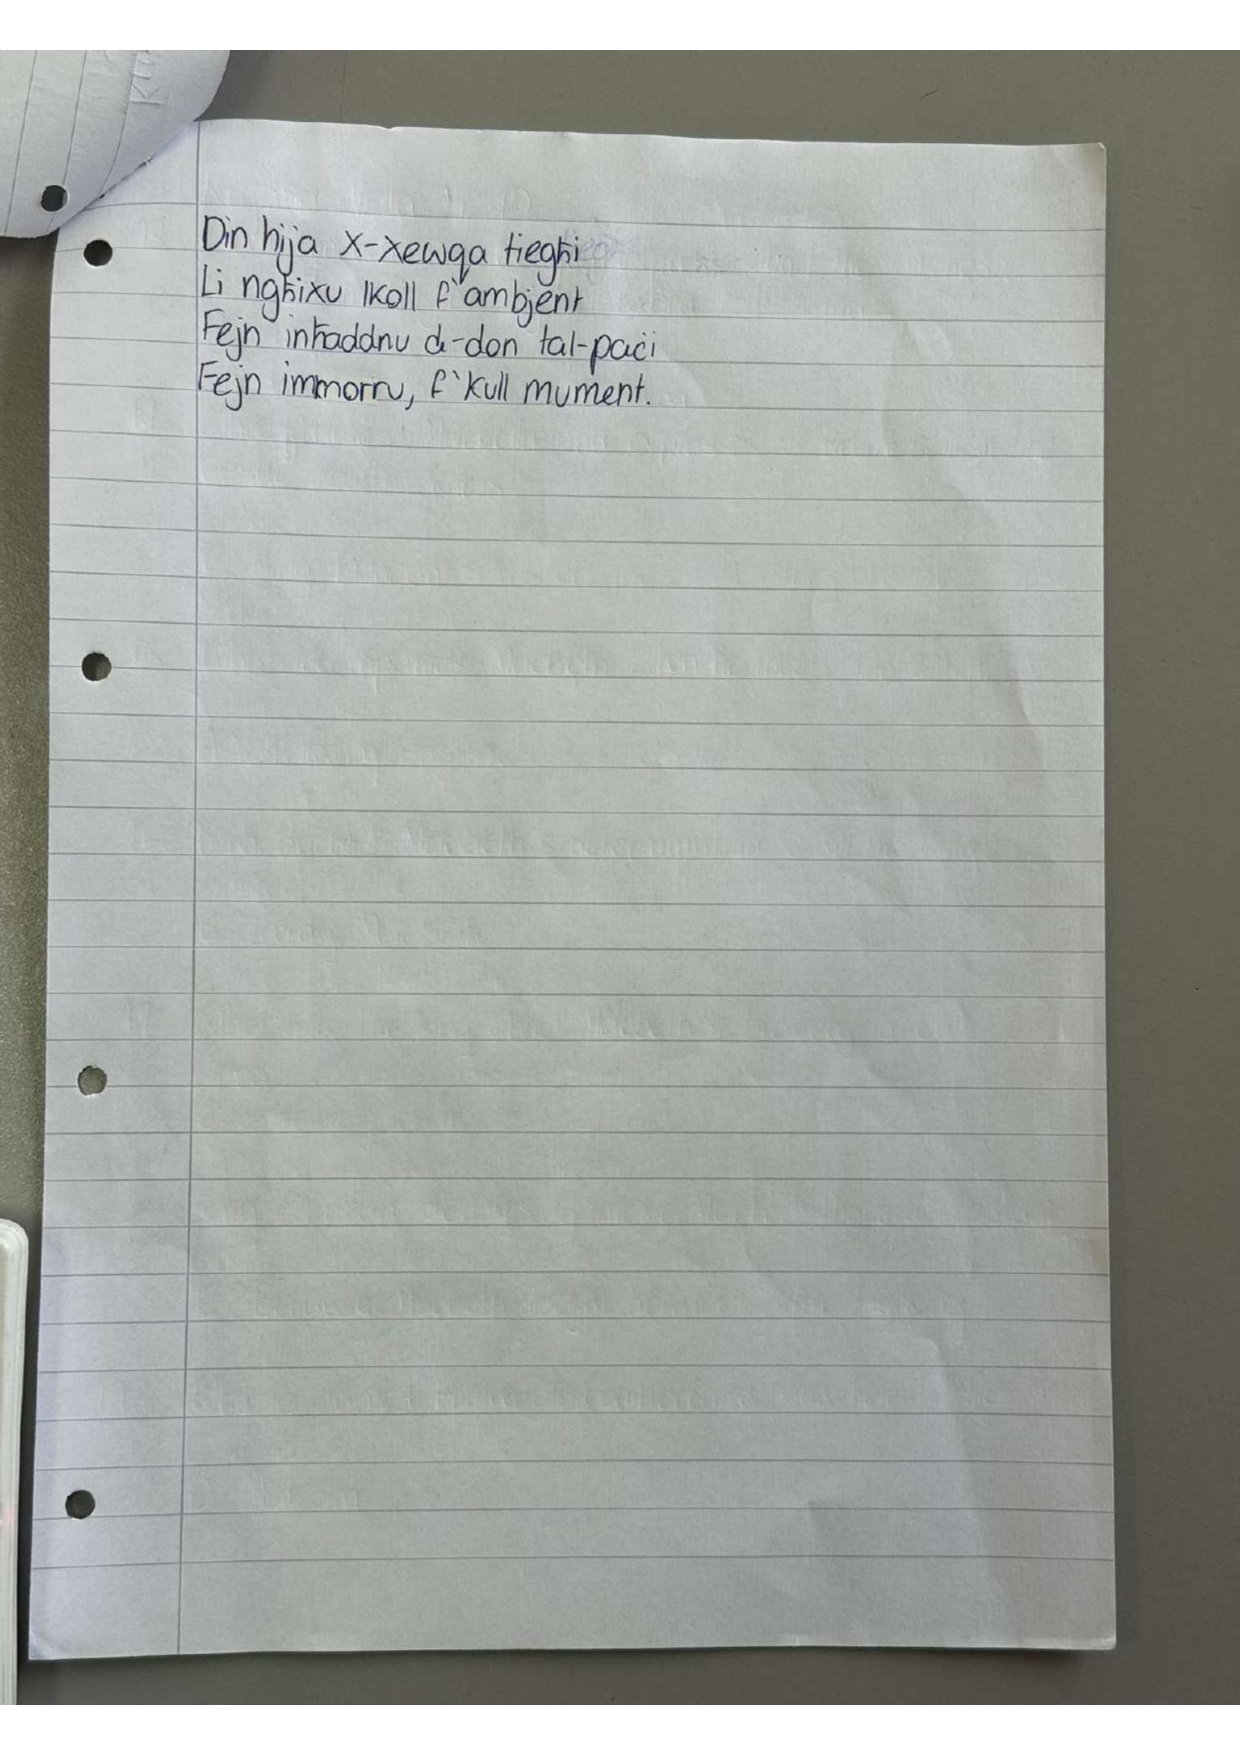 Din hija x-xewqa tiegħi
Li ngħixu lkoll f'ambjent
Fejn inħaddnu d-don tal-paċi
Fejn immorru, f'kull mument.